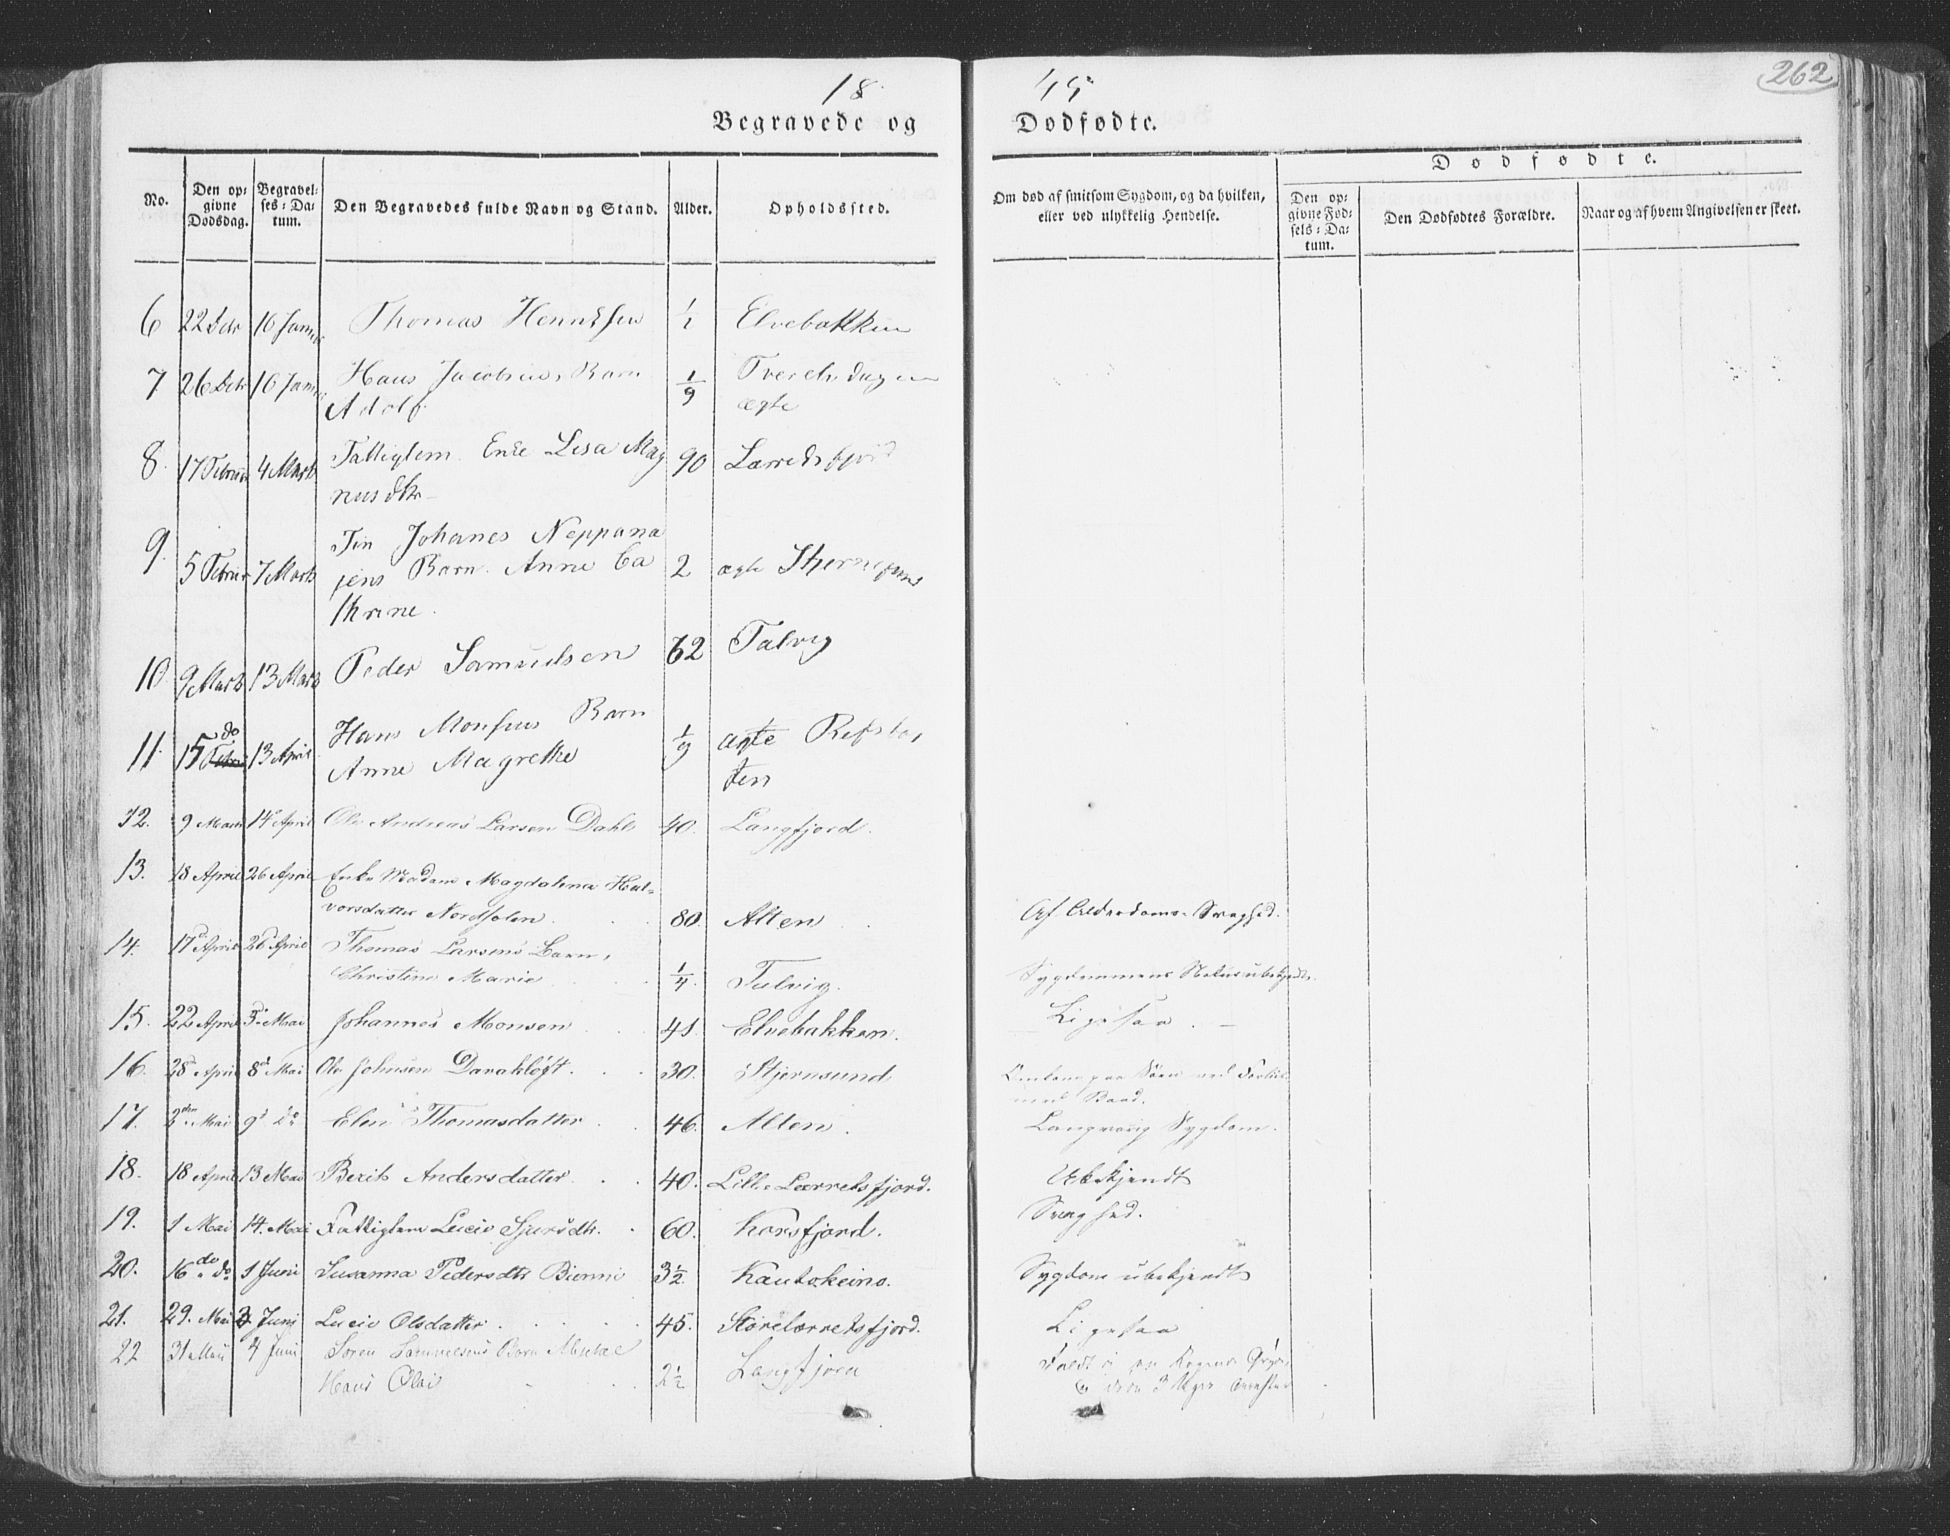 18 45
262
Begravede og Dødfødte.
Dødfødte.
No.
Den op-
givne
Dødsdag.
Begravel-
ses-Da-
tum.
Den Begravedes fulde Navn og Stand.
Alder.
Opholdssted.
Om død af smitsom Sygdom, og da hvilken,
eller ved ulykkelig Hendelse.
Den op-
givne Fød-
sels-Da-
tum.
Den Dødfødtes Forældre.
Naar og af hvem Angivelsen er skeet.
6 22 16 Thomas 1/2 Elvebakken
7 26 16 Hans Jacobsens Barn 1/9
Adolf. ægte
8. 17 4 Marts Fattiglem Enke Lisa Mag 90
nusdtr
9. 5 7 Marts Fin Johanes Neppana
jens Barn. Anne Ca 2 ægte
thrine.
10 9 Marts 13 Marts Peder Samuelsen 62 Talvig
11. 15 do 13 April Hans Monsens Barn 1/9 ægte Refsbo,
Anne Magrethe ten
12. 9 14 April Ole Andreas Larsen Dahl 40. Langfjord.
13. 18 April 26 April Enke Madam Magdalena Hal-
vorsdatter 80. Alten. Af Alderdoms-Svaghed.
14. 17 April 26 April Thomas Larsens Barn,
Christine Marie 1/4 Talvig. Sygdommens
15. 22 April 3 Mai Johannes Monsen 41. Elvebakken. Ligesaa.
16. 28 April 8 Mai Ole Johnsen 30. Stjernsund
17. 2den Mai 9 do Elen Thomasdatter 46. Alten. Langvarig Sygdom.
18. 18 April 13 Mai Berit Andersdatter 40. Lille Lærretsfjord. Ubekjendt
19. 1 Mai 14. Mai Fattiglem Lucie 60. Korsfjord. Svaghed.
20. 16 do 1 Juni Susanna Pedersdtr 3 1/2 Kautokeino. Sygdom ubekjendt
21. 29. Mai 3. Juni Lucie Olsdatter 45. Storelærretsfjord. Ligesaa
22 31 4 Juni Søren Samuelsens Barn
Hans Olai 2 1/2 Langfjord